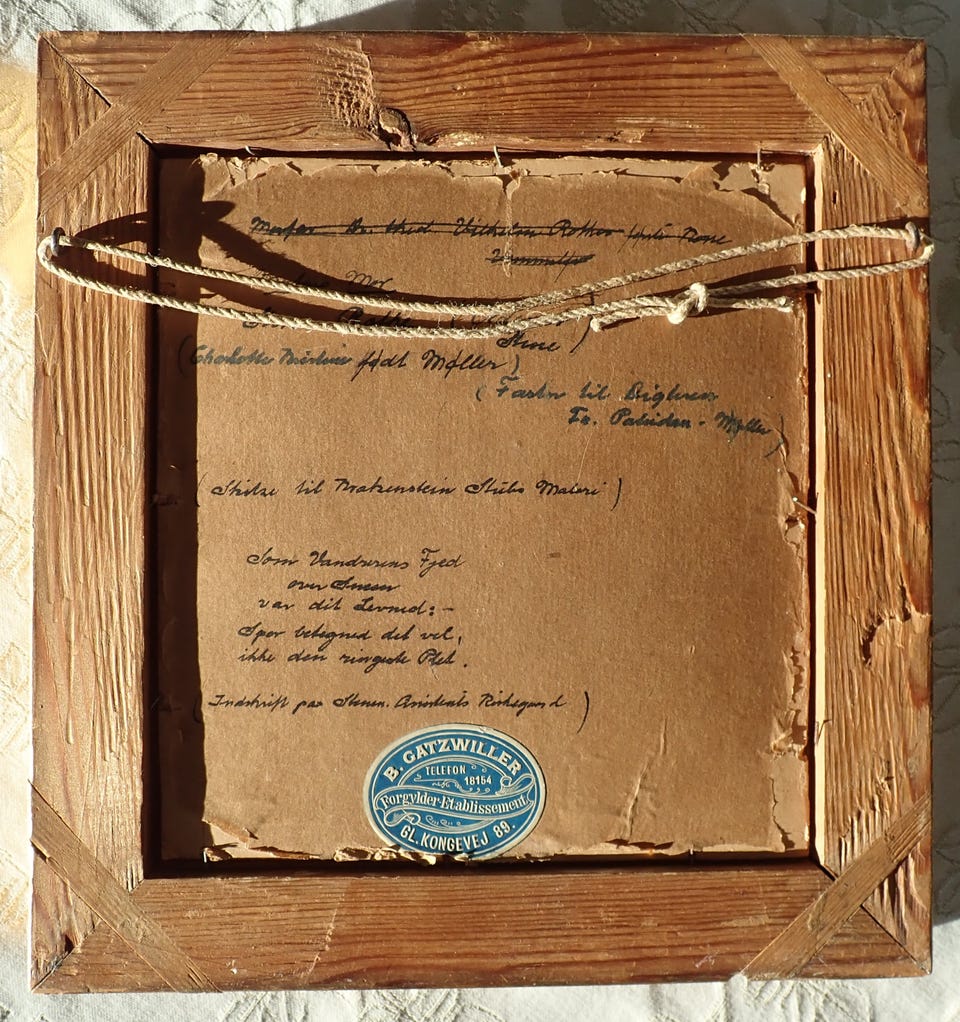 Morfar Vilhelm Rothe født Rone
Mor
Rothe
Stene )
(Charlotte født Møller )
( Faster til Digteren
Fr. Paludan - Møller )
( Skitze til Kratzenstein Stubs Maleri )
Som Vandrerens Fjed
over Sneen
var dit Levned: -
Spor betegned det vel,
ikke den ringeste Plet.
( Indskrift paa Stenen. Assistents Kirkegaard )
B. GATZWILLER
TELEFON 18154
Forgylder-Etablissement
GL. KONGEVEJ 89.